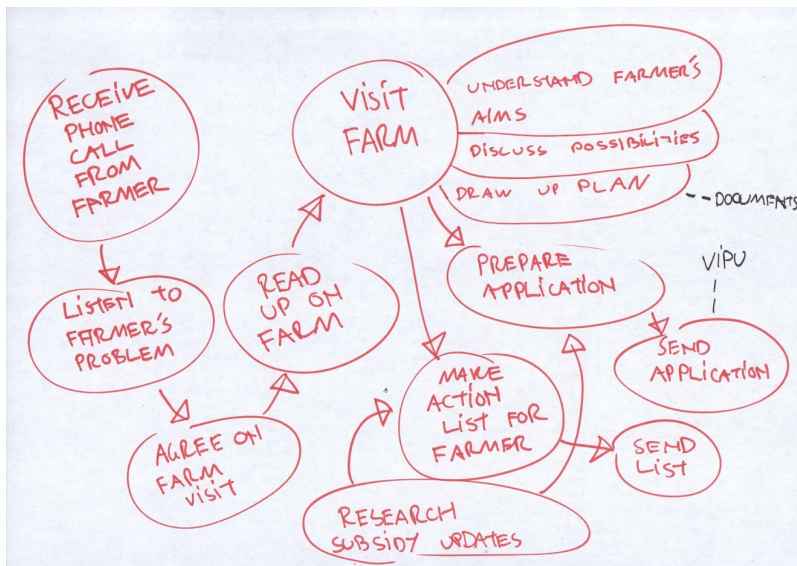 RECEIVE
PHONE
CALL
FROM
FARMER
LISTEN TO
FARMER'S
PROBLEM
AGREE ON
FARM
VISIT
READ
UP ON
FARM
VISIT
FARM
UNDERSTAND FARMER'S
AIMS
DISCUSS POSSIBILITIES
DRAW UP PLAN
-- DOCUMENTS
PREPARE
APPLICATION
VIPU
SEND
APPLICATION
MAKE
ACTION
LIST FOR
FARMER
SEND
LIST
RESEARCH
SUBSIDY UPDATES